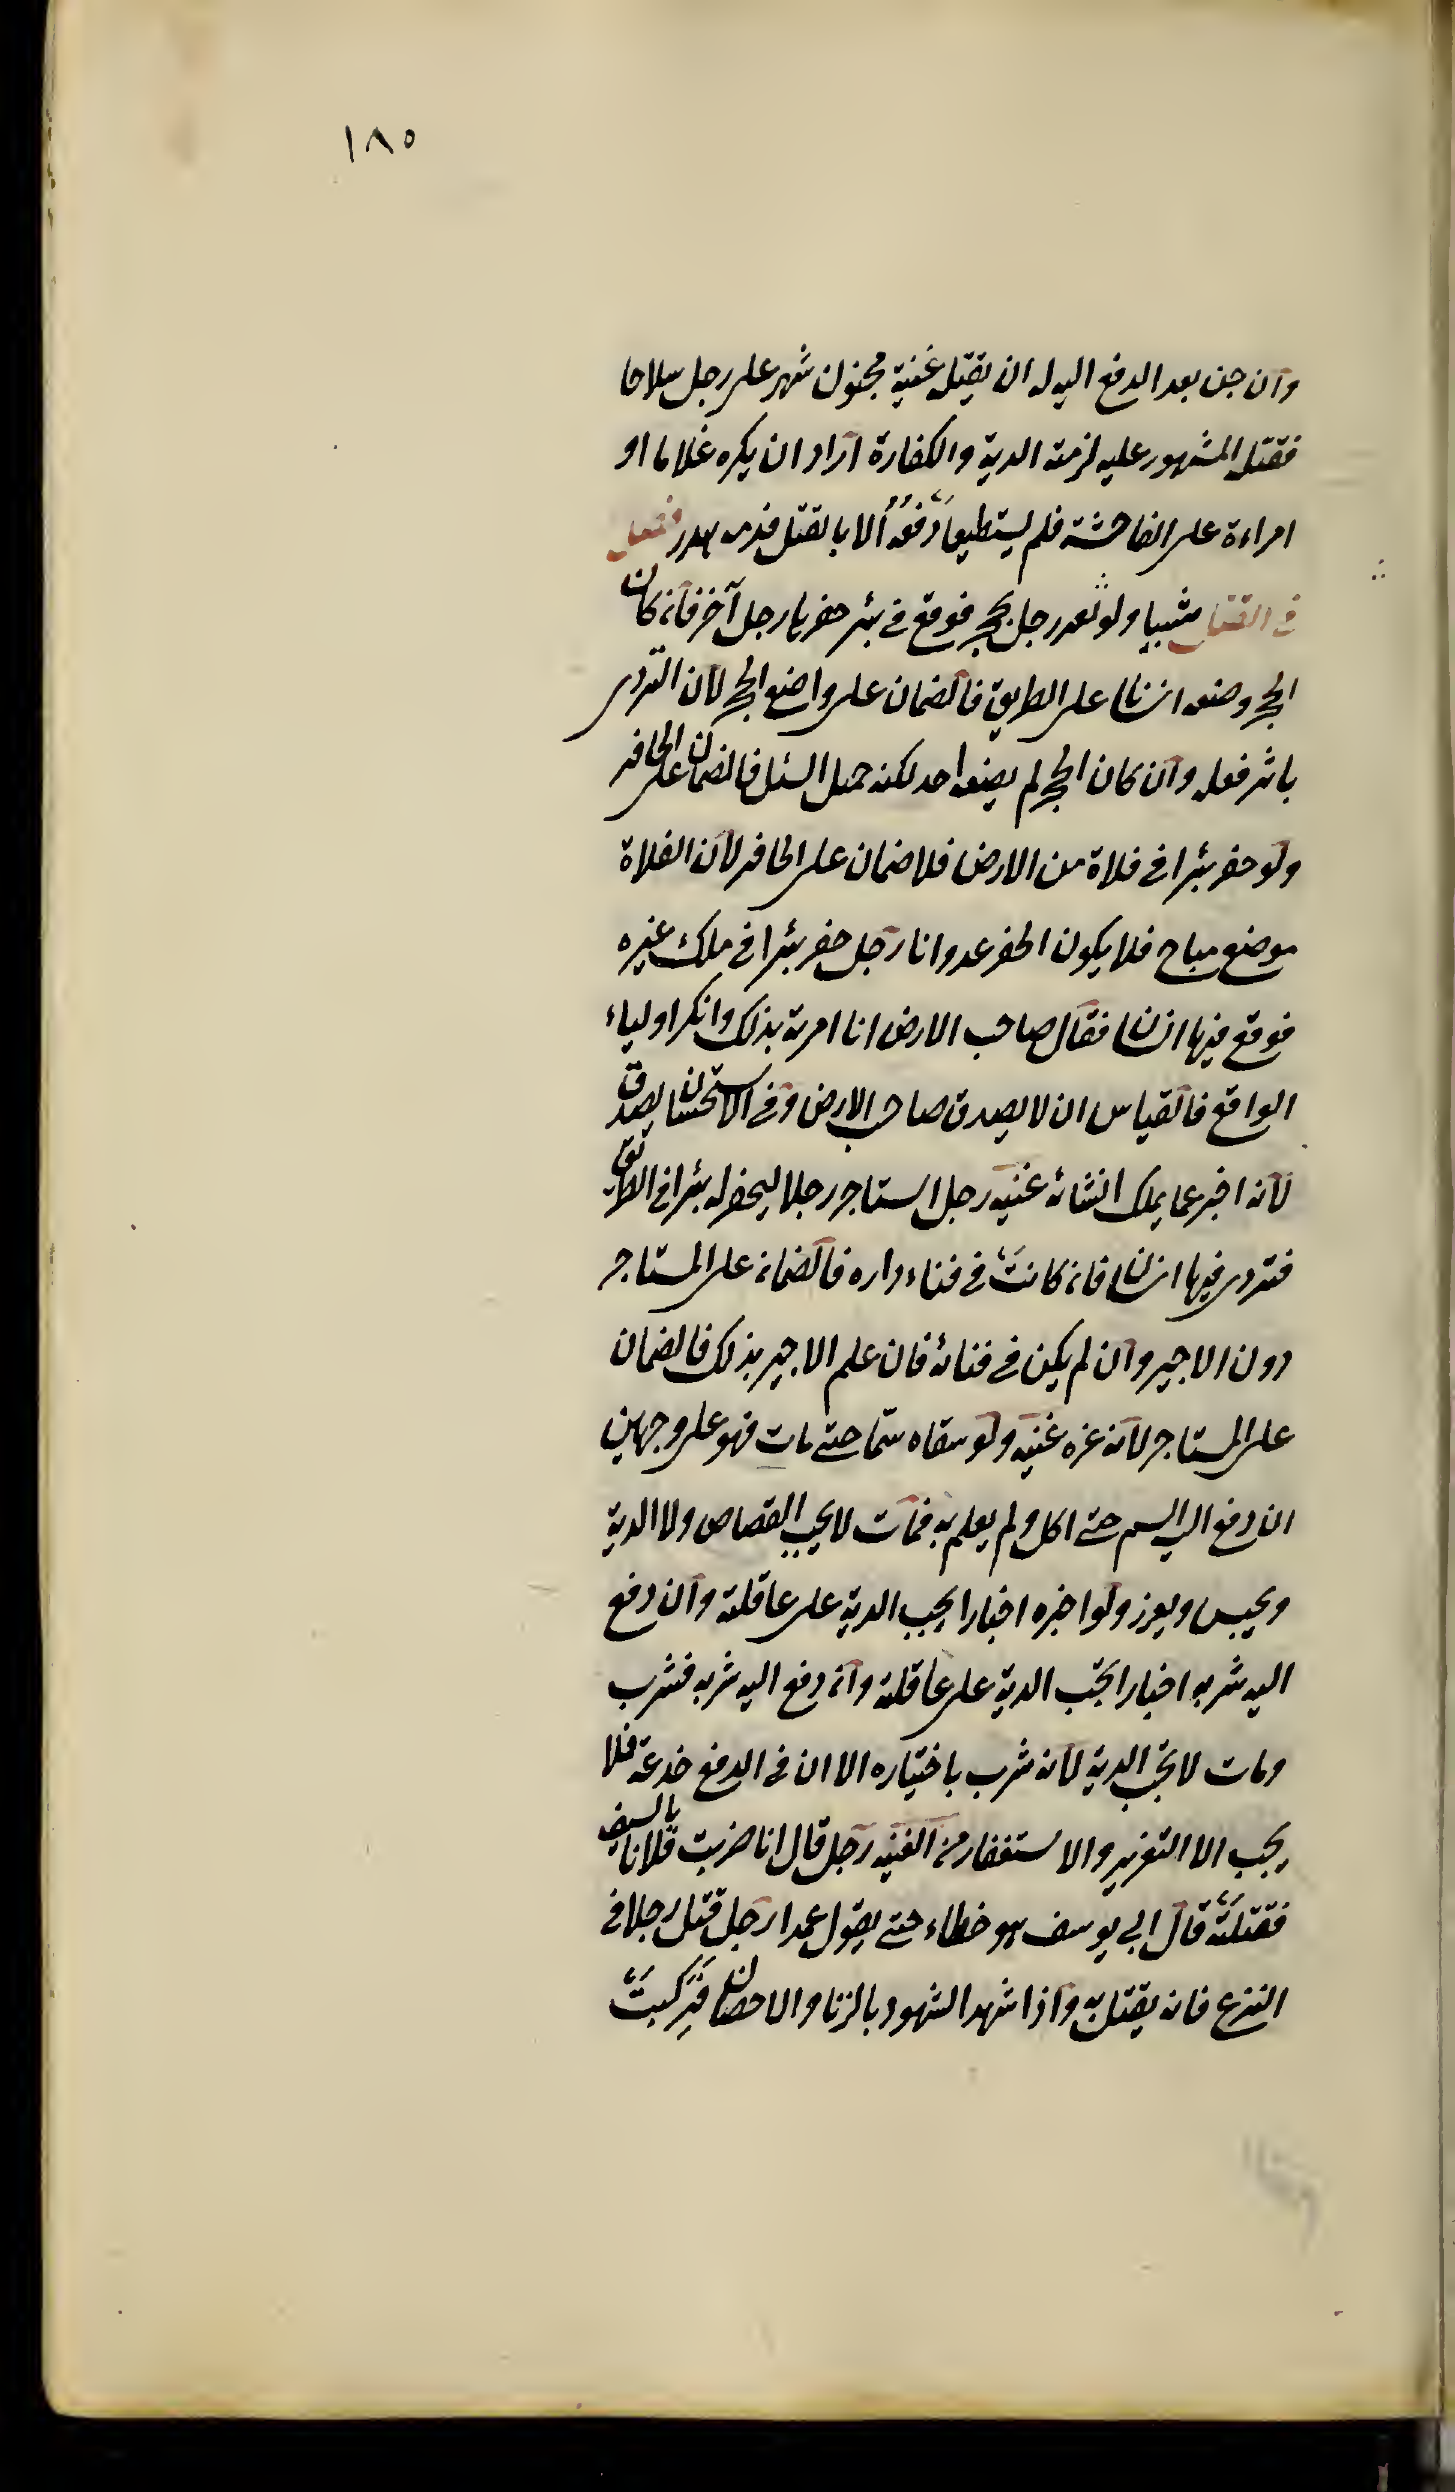 ١٨٥
وان جن بعد الدفع اليه له ان يقتله غنية مجنون شهر على رجل سلاحا
فقتله المشهور عليه لزمته الدية والكفارة اراد ان يكره غلاما او
امراءة على الفاحشة فلم يستطيعا دفعه الا بالقتل فدمه هدر فصل
فى القتل تسبيبا ولو تعدر رجل بحجر فوقع فى بئر حفرها رجل آخر فان كان
الحجر وضعه انسان على الطريق فالضمان على واضع الحجر لان التردى
باثر فعله وان كان الحجر لم يضعه احد لكنه حميل السئل فالضمان على الحافر
ولو حفر بئرا فى فلاة من الارض فلا ضمان على الحافر لان الفلاة
موضع مباح فلا يكون الحفر عدوانا رجل حفر بئرا فى ملك غيره
فوقع فيها انسان فقال صاحب الارض انا امرته بذلك وانكر اولياء
الواقع فالقياس ان لا يصدق صاحب الارض وفى الاستحسان يصدق
لانه اخبر عما يملك انشائه غنيه رجل استاجر رجلا ليحفر له بئرا فى الطريق
فتردى فيها انسان فان كانت فى فناء داره فالضمان على المستاجر
دون الاجير وان لم يكن فى فنائه فان علم الاجير بذلك فالضمان
على المستاجر لانه غره غنيه ولو سقاه سما حتى مات فهو على وجهين
ان دفع اليه السم حتى اكل ولم يعلم به فمات لا يجب القصاص ولا الدية
ويحبس ويعزر ولو اجبره اخبارا يجب الدية على عاقلته وان دفع
اليه شربه اخبارا تجب الدية على عاقلته وان دفع اليه شربه فشرب
ومات لا تجب الدية لانه شرب باختياره الا ان فى الدفع خدعة فلا
يجب الا التعزير والاستغفار من الغنيه رجل قال انا ضربت فلانا بالسيف
فقتلته قال ابى يوسف هو خطاء حتى يقول عمدا رجل قتل رجلا فى
النزع فانه يقتل به واذا شهد الشهود بالزنا والاحصان